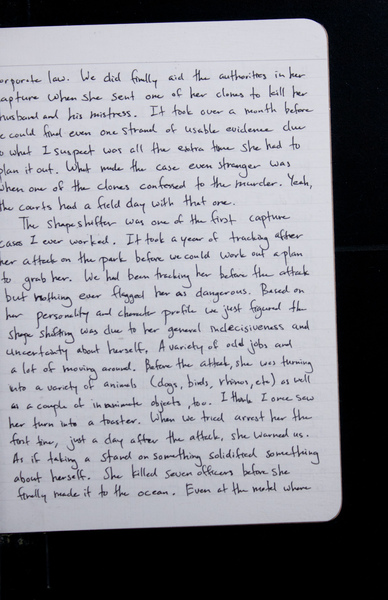 orporate law. We did finally aid the authorities in her
capture when she sent one of her clones to kill her
husband and his mistress. It took over a month before
e could find even one strand of usable evidence due
o what I suspect was all the extra time she had to
plan it out. What made the case even stranger was
when one of the clones confessed to the murder. Yeah,
the courts had a field day with that one.
The Shapeshifter was one of the first capture
cases I ever worked. It took a year of tracking after
her attack on the park before we could work out a plan
to grab her. We had been tracking her before the attack
but nothing ever flagged her as dangerous. Based on
her personality and character profile we just figured the
shape shifting was due to her general indecisiveness and
uncertainty about herself. A variety of odd jobs and
a lot of moving around. Before the attack, she was turning
into a variety of animals (dogs, birds, rhinos, etc) as well
as a couple of inanimate objects, too. I think I once saw
her turn into a toaster. When we tried arrest her the
first time, just a day after the attack, she warned us.
As if taking a stand on something solidified something
about herself. She killed seven officers before she
finally made it to the ocean. Even at the motel where